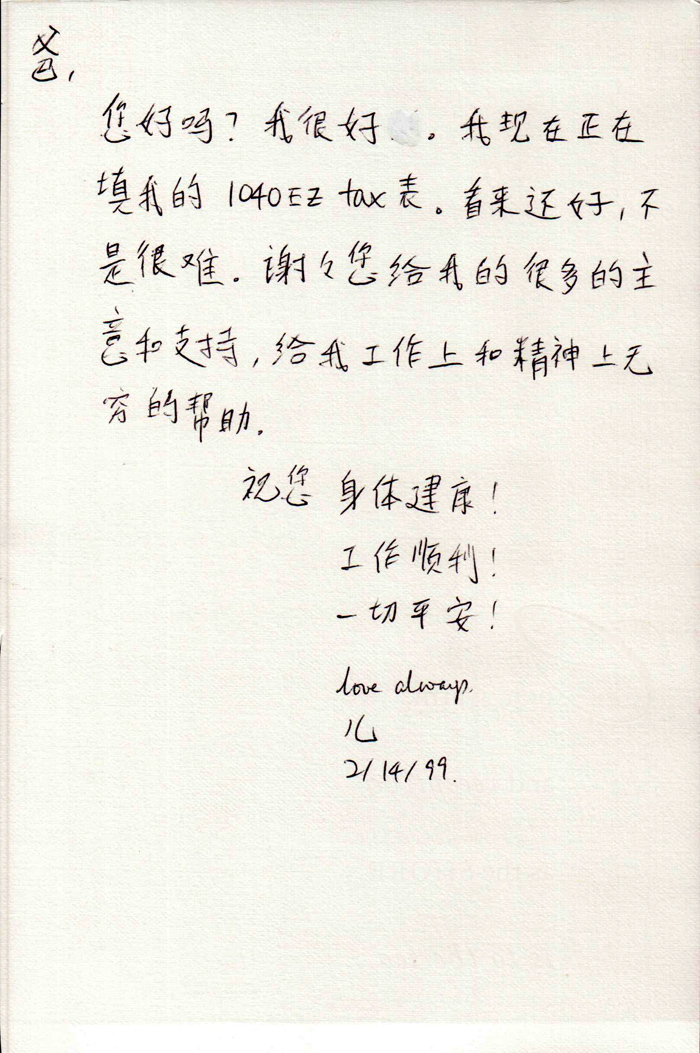 爸,
您好吗? 我很好。我现在正在
填我的 1040EZ tax 表。看来还好, 不
是很难. 谢々您给我的很多的主
意和支持, 给我工作上和精神上无
穷的帮助.
祝您 身体建康!
工作顺利!
一切平安!
love always.
儿
2/14/99.